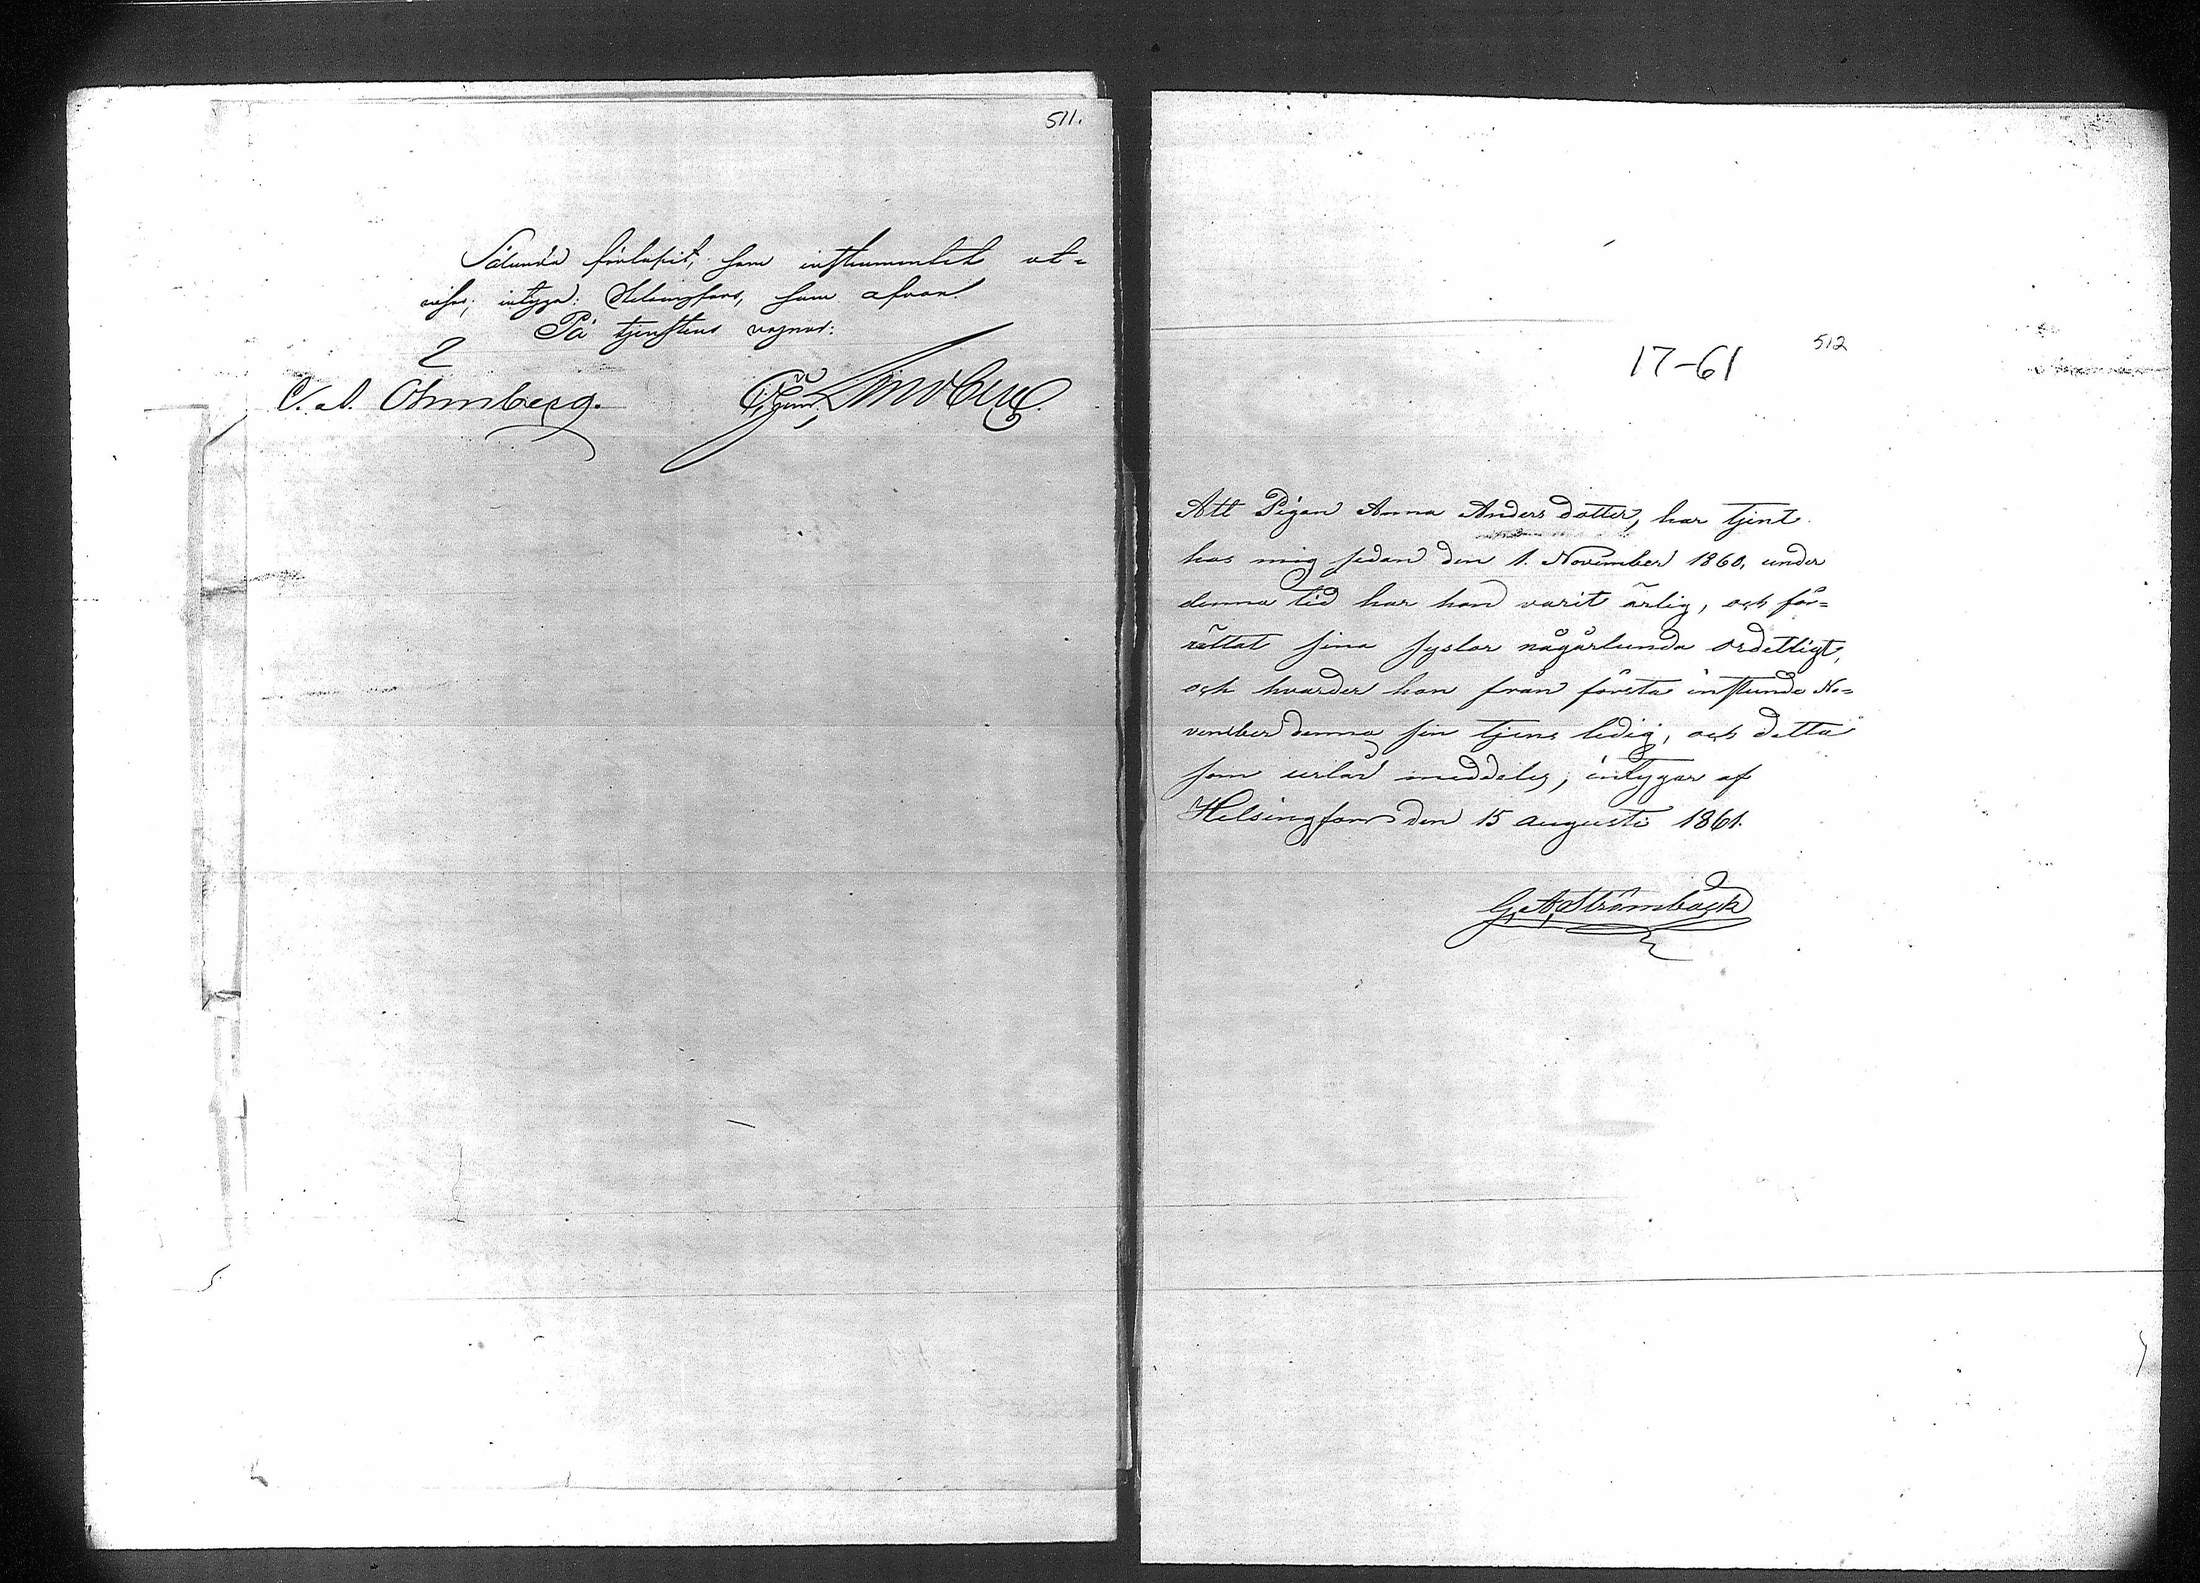 511.
Sålunda förlupit, som instrumentet ut-
visar, intyga: Helsingfors, som ofvan.
På tjenstens vägnar:
C. A. Öhmberg. Lindberg.
512
17-61
Att Pigan Anna Anders dotter, har tjent
hos mig sedan den 1. November 1860, under
denna tid har hon varit ärlig, och för=
rättat sina syslor någårlunda ordetligt,
och hvarder hon från första instunde No=
vember denna sin tjens ledig, och detta
som urlåv meddeles, intygar af
Helsingfors den 15 augusti 1861.
G. A. Strömbäck